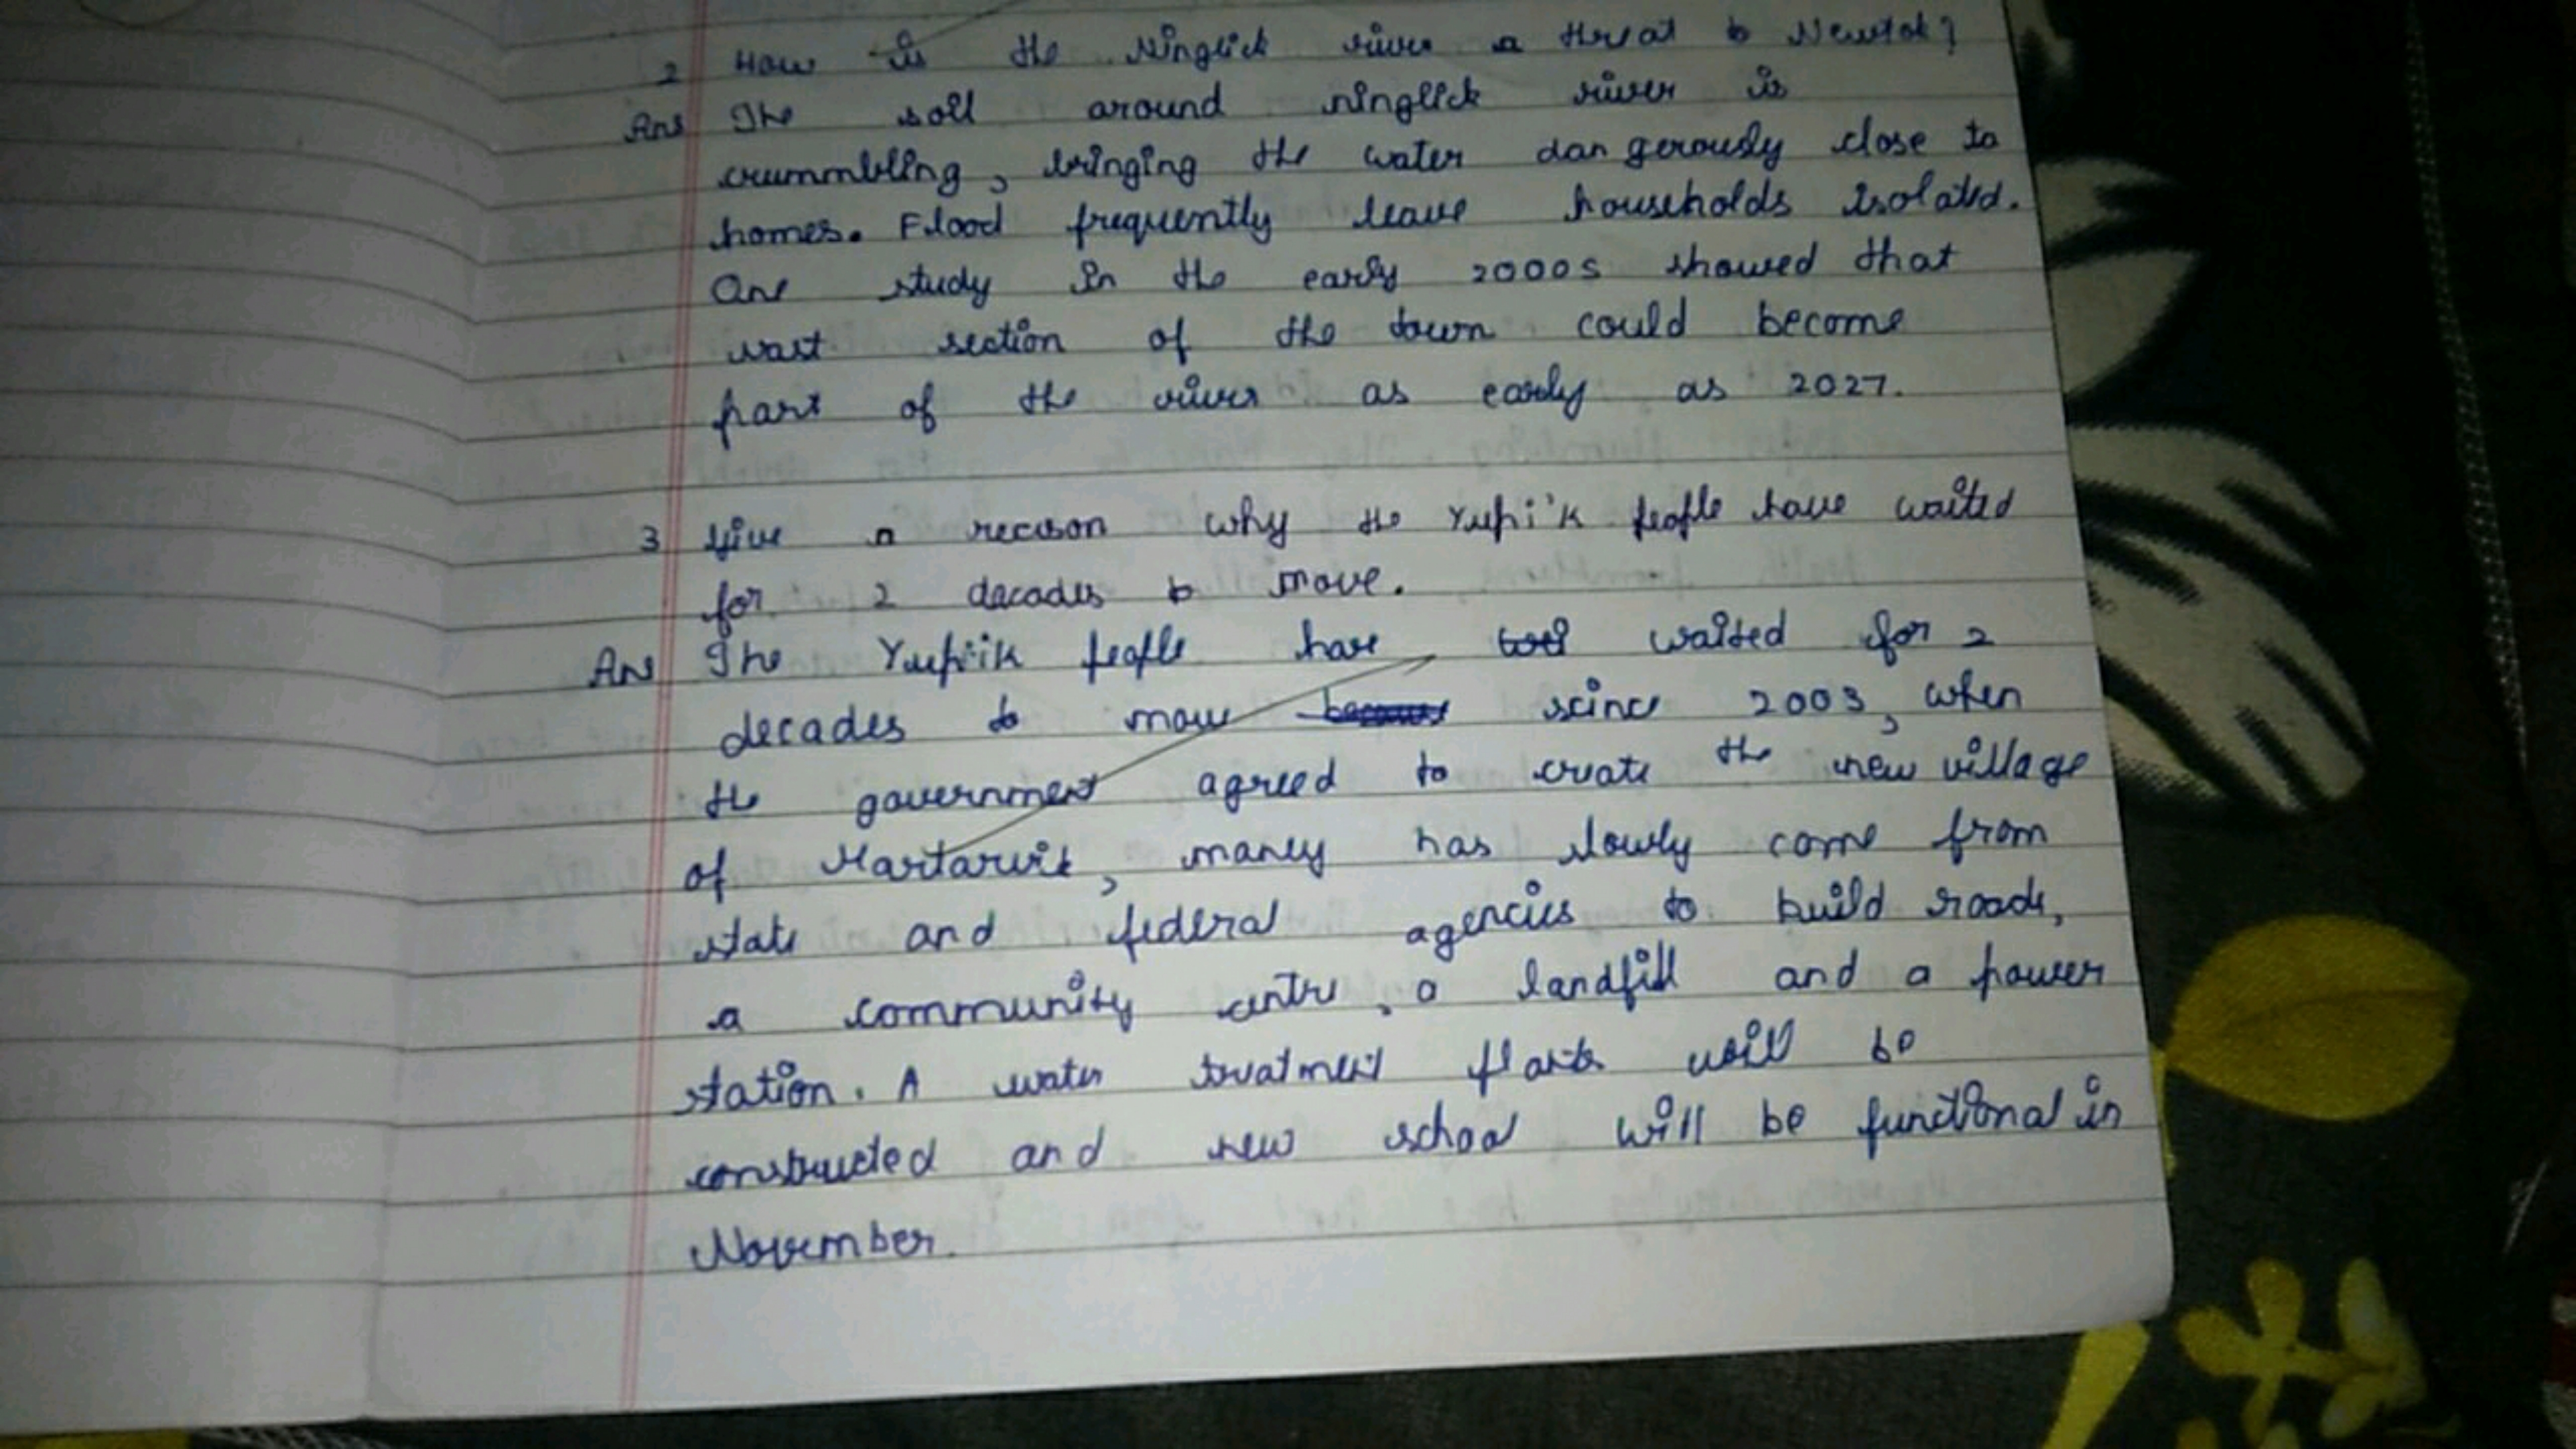 2 How is the Ninglick river a threat to Newtok?
Ans The soil around ninglick river is
crummbling, bringing the water dangerously close to
homes. Flood frequently leave households isolated.
One study in the early 2000s showed that
vast section of the town could become
part of the river as early as 2027.
3 Give a reason why the Yup'i'k people have waited
for 2 decades to move.
Ans The Yup'iik people have waited for 2
decades to move scince 2003, when
the government agreed to create the new village
of Martarvik, money has slowly come from
state and federal agencies to build roads,
a community centre, a landfill and a power
station. A water treatment plants will be
constructed and new school will be functional in
November.